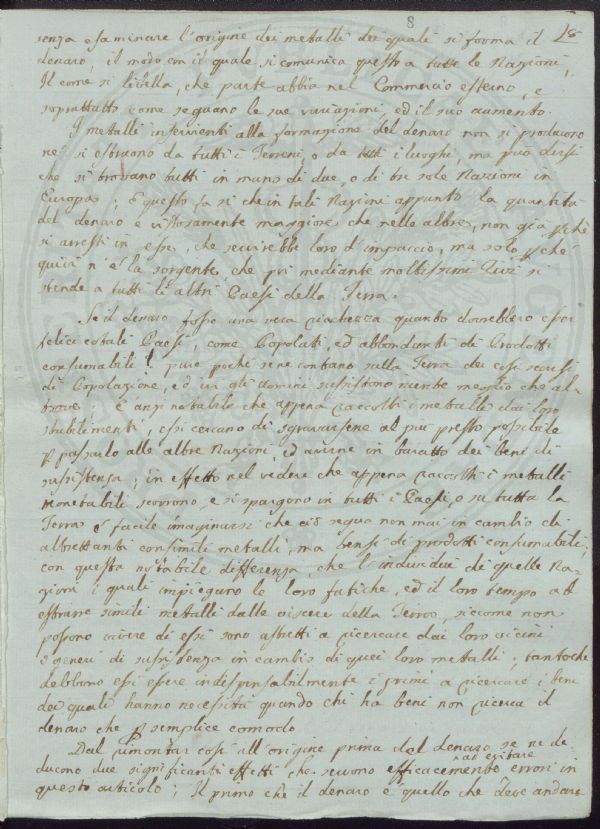 8 18
senza esaminare l'origine dei metalli dei quali si forma il
denaro, il modo con il quale si comunica questo a tutte le Nazioni,
Il come si livella, che parte abbia nel Commercio esterno, e
soprattutto come seguano le sue variazioni, ed il suo aumento.
I metalli inservienti alla formazione del denaro non si producono
ne si estraono da tutti i Terreni, o da tutti i luoghi, ma può dirsi
che si trovano tutti in mano di due, o di tre sole Nazioni in
Europa; E questo fa si che in tali Nazioni appunto la quantità
del denaro e vistosamente maggiore che nelle altre, non già pchè
si arresti in esse, che servirebbe loro d'impaccio, ma solo pchè
quivi n'è la sorgente, che poi mediante moltissimi Rivi si
stende a tutti li altri Paesi della Terra.
Se il denaro fosse una vera ricchezza quanto dovrebbero esser
felici cotali Paesi, come Popolati, ed abbondanti di Prodotti
consumabili! pure pochi se ne contano sulla Terra dei così scarsi
di Popolazione, ed in gli uomini sussistono niente meglio che al-
trove; è anzi notabile che appena raccolti i metalli dai loro
stabilimenti, essi cercano di sgravarsene al più presto possibile
p passarlo alle altre Nazioni, ed averne in baratto dei beni di
sussistenza; in effetto nel vedere che appena raccolti i metalli
monetabili scorrono, e si spargono in tutti i Paesi, o su tutta la
Terra è facile imaginarsi che ciò segua non mai in cambio di
altrettanti consimili metalli, ma bensi di prodotti consumabili,
con questa notabile differenza, che l'individui di quelle Na-
zioni i quali impiegano le loro fatiche, ed il loro tempo ad
estrarre simili metalli dalle viscere della Terra, siccome non
possono vivere di essi sono astretti a ricercare dai loro vicini
i generi di sussistenza in cambio di quei loro metalli, tantoche
debbono essi essere indispensabilmente i primi a ricercare i beni
dei quali hanno necessità quando chi ha beni non ricerca il
denaro che p semplice comodo
Dal rimontar così all'origine prima del denaro se ne de
ducono due significanti effetti che servono efficacemente ad evitare errori in
questo articolo; Il primo che il denaro è quello che deve andare